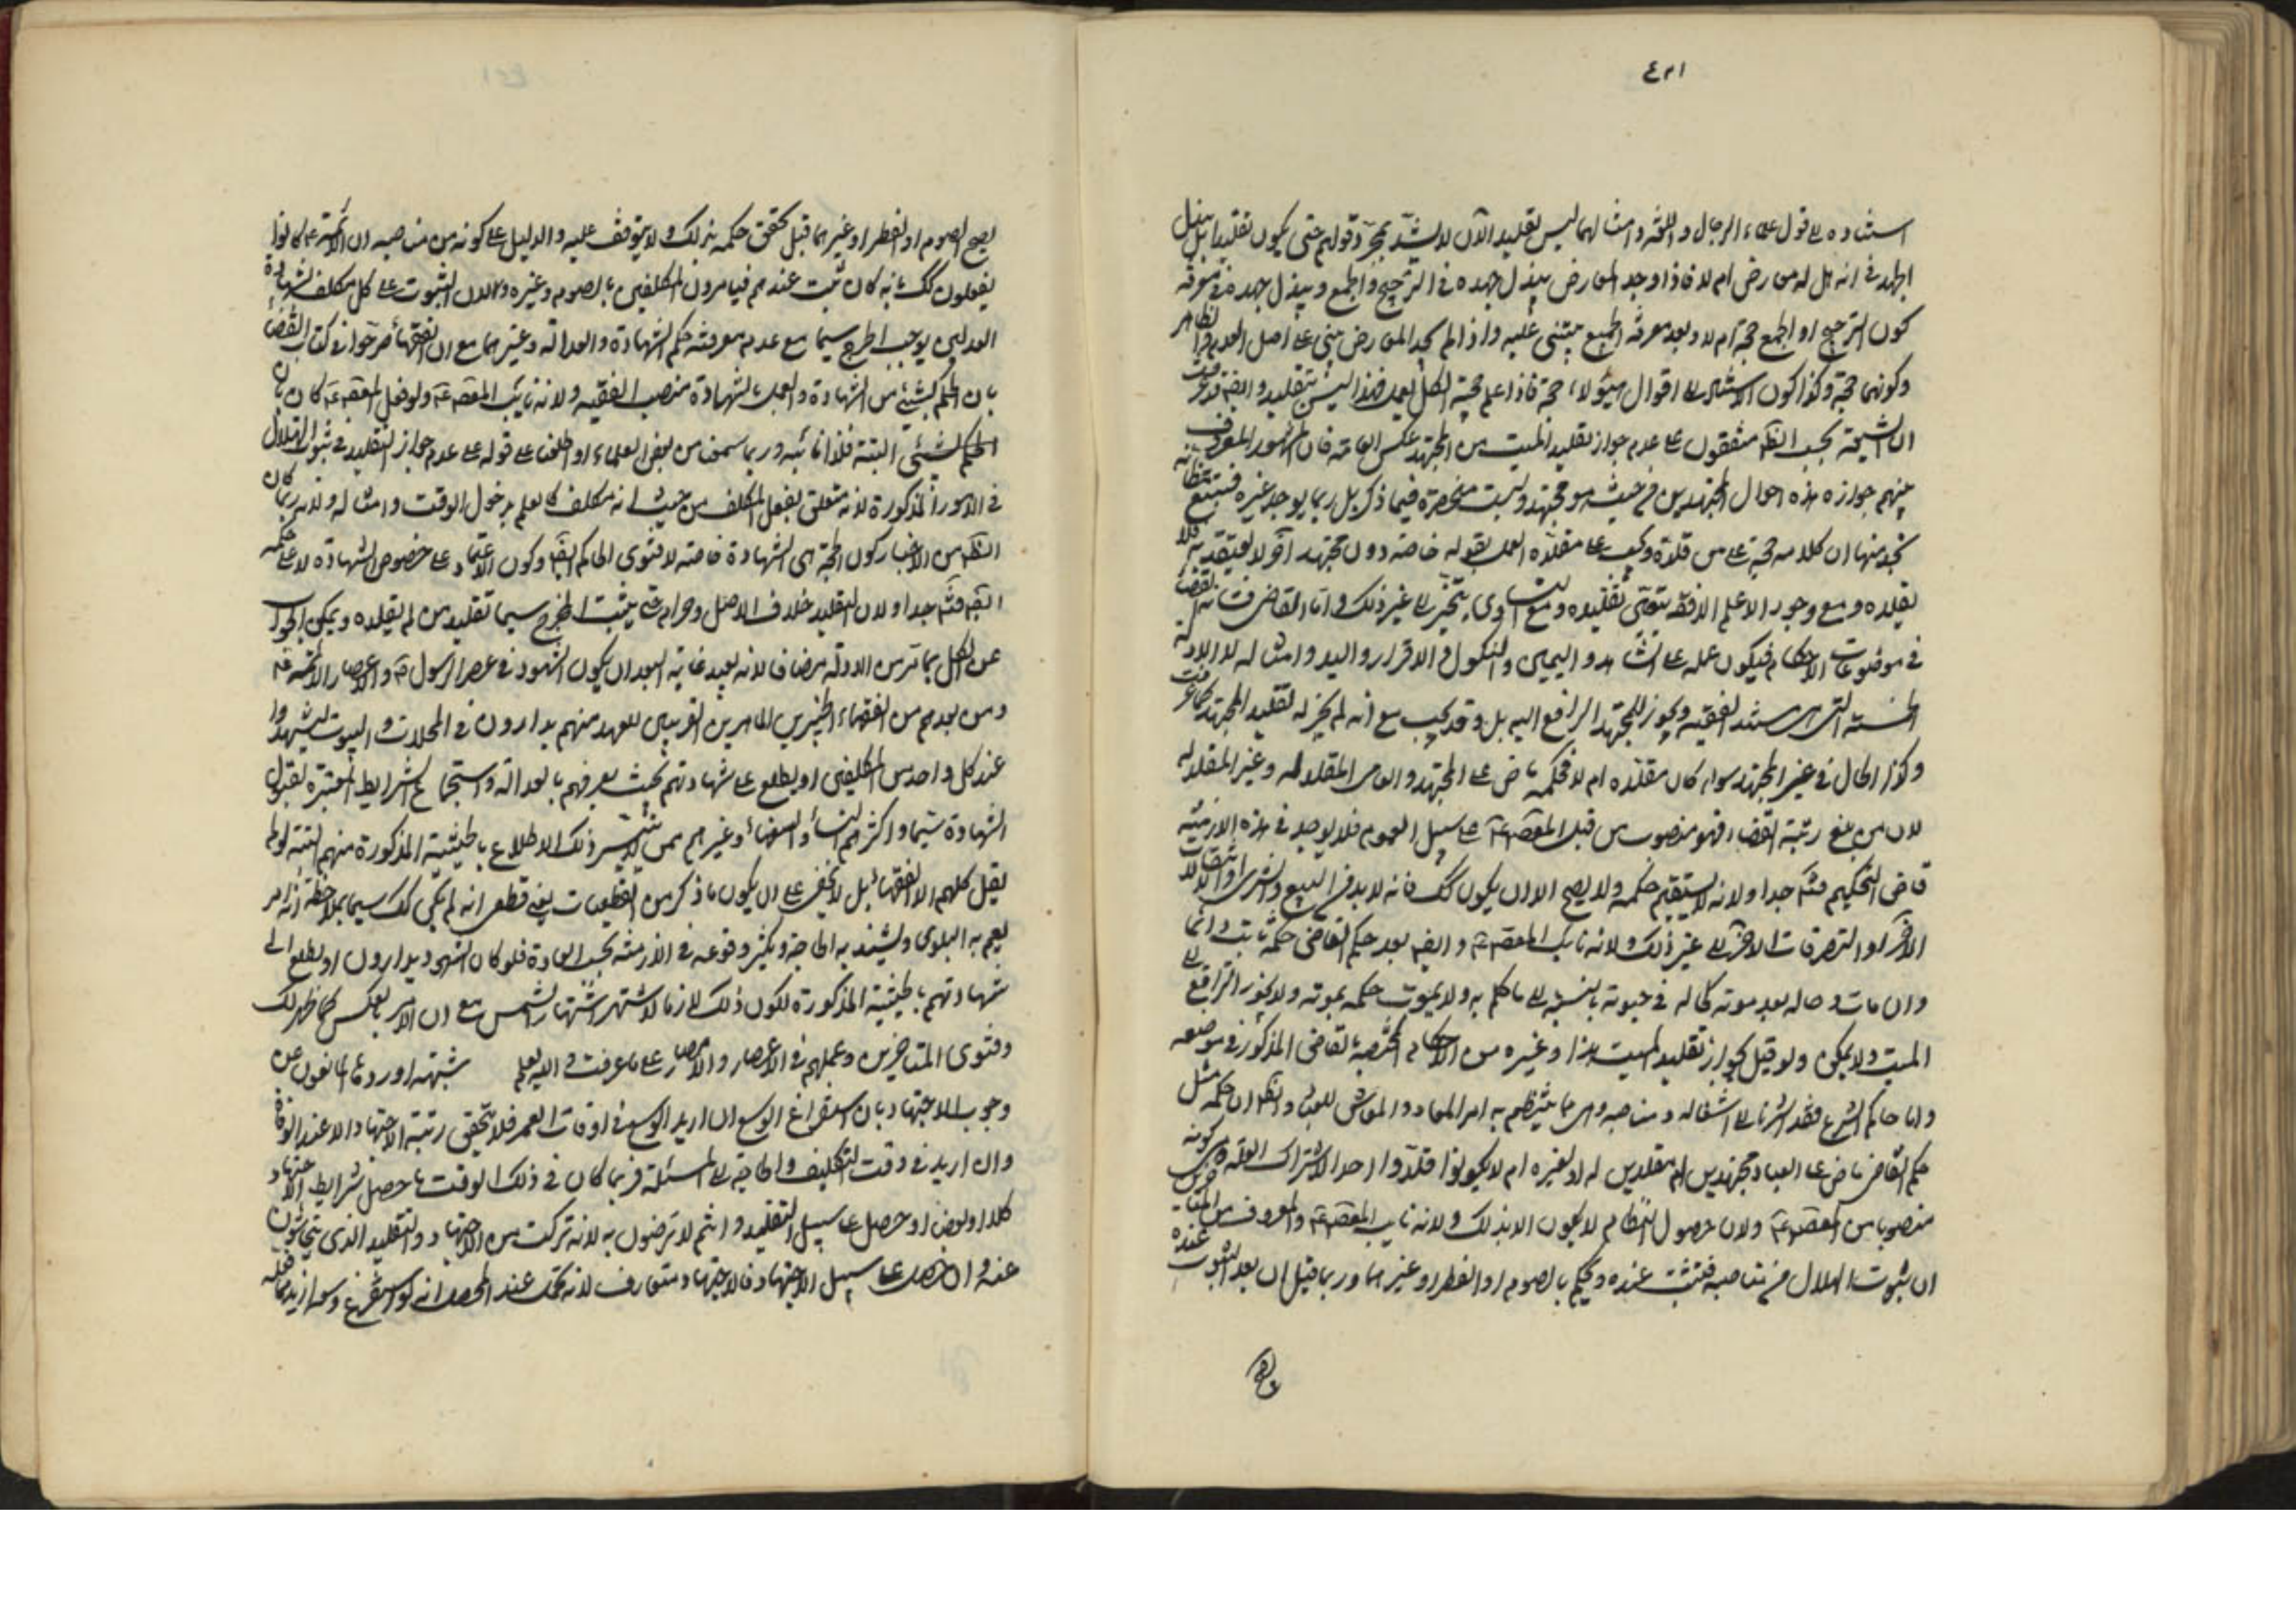 ٤٢١
استناده على قول علماء الرجال واللغة وامثالهما ليس تقليدا لان لا يستند بمجرد قولهم حتى يكون تقليدا بل يبذل
الجهد في انه هل له معارض ام لا فاذا وجد المعارض يبذل جهده في الترجيح والجمع ويبذل جهده في معرفة
كون الترجيح او الجمع حجة ام لا وبعد معرفة الجميع يبتنى عليه واذا لم يجد المعارض يبنى على اصل العدم والظاهر
وكونهما حجة وكذا كون الاستناد الى اقوال هؤلاء حجة فاذا علم حجية الكل يعمل فهذا ليس بتقليد وايضا قد عرفت
ان الشيعة بحسب الظ متفقون على عدم جواز تقليد الميت من المجتهد عكس العامة فان المشهور المعروف
منهم جوازه هذه احوال المجتهدين من حيث هو مجتهد وليست منحصرة فيما ذكر بل ربما يوجد غيره فتتبع
تجد منها ان كلامه حجة على من قلده ويجب على مقلده العمل بقوله خاصة دون مجتهد آخر لا يعتقد به فلا
يقلده ومع وجود الاعلم الافقه يتعين تقليده ومع التساوى يتخير الى غير ذلك واما القاضى
في موضوعات الاحكام فيكون عمله على الشاهد واليمين والنكول والاقرار واليد وامثاله لا الادلة
الخمسة التى هى مستند الفقيه ويجوز للمجتهد الرافع اليه بل وقد يجب مع انه لم يجز له تقليد المجتهد كما عرفت
وكذا الحال في غير المجتهد سواء كان مقلده ام لا فحكمه ماض على المجتهد والعامى المقلد له وغير المقلد له
لان من بلغ رتبة القضاء فهو منصوب من قبل المعصوم ع على سبيل العموم فلا يوجد في هذه الازمنة
قاضى التحكيم منه جدا ولانه لا يستقيم حكمه ولا يصح الا ان يكون كك فانه لا بد في البيع والشرى
الاخر او التصرفات الاخر الى غير ذلك ولانه نايب المعصوم ع وايضا بعد حكم القاضى حكمه ثابت دائما
وان مات وحاله بعد موته كحاله في حيوته بالنسبة الى ما حكم به ولا يموت حكمه بموته ولا يجوز الترافع الى
الميت ولا يمكن ولو قيل بجواز تقليد الميت هذا وغيره من الاحكام المختصة بالقاضى المذكور في موضعه
واما حاكم الشرع فقد اشرنا الى اشغاله ومناصبه وهى مما ينتظم به امر المعاد والمعاش للعباد والظ ان حكمه مثل
حكم القاضى ماض على العباد مجتهدين ام مقلدين له او لغيره ام لا يكونوا قلدوا احدا لاشتراك العلة وهى كونه
منصوبا من المعصوم ع ولان حصول النظام لا يكون الا بذلك ولانه نايب المعصوم ع والمعروف من
ان ثبوت الهلال من مناصبه فيثبت عنده ويحكم بالصوم او الفطر او غيرهما وربما قيل ان بعد الثبوت عنده
يصح الصوم او الفطر او غيرهما قبل تحقق حكمه بذلك ولا يتوقف عليه والدليل على كونه من مناصبه ان الائمة ع كانوا
يفعلون كك بانه كان ثبت عندهم فيأمرون المكلفين بالصوم وغيره ولان الثبوت على كل مكلف بشهادة
العدلين يوجب الحرج سيما مع عدم معرفته حكم الشهادة والعدالة وغيرهما مع ان الفقهاء صرحوا في كتاب القضاء
بان الحكم بشئ من الشهادة والعمل بالشهادة منصب الفقيه ولانه نايب المعصوم ع ولو فعل المعصوم ع كان
الحكم لشئ البتة فكذا نائبه وربما سمعت من بعض العلماء او اطلعت على قوله على عدم جواز التقليد في ثبوت الهلال
في الامور المذكورة لانه متعلق بفعل المكلف من حيث انه مكلف كالعلم بدخول الوقت وامثاله ولانه ربما كان
الظ من الاخبار كون الحجة هى الشهادة خاصة لا فتوى الحاكم ايضا وكون الاعتماد على خصوص الشهادة لا على حكمه
ايضا منه جدا ولان التقليد خلاف الاصل وحرام حتى يثبت المخرج سيما تقليد من لم يقلده ويمكن الجواب
عن الكل بما مر من الادلة مضافا لانه بعيد غاية البعد ان يكون الشهود في عصر الرسول ص واعصار الائمة ع
ومن بعدهم من الفقهاء الخبيرين الماهرين القريبين للعهد منهم يدارون في المحلات والبيوت ليشهدوا
عند كل واحد من المكلفين او يطلع على شهادتهم بحيث يعرفهم بالعدالة واستجماع الشرايط المعتبرة لقبول
الشهادة سيما واكثرهم النساء والسفهاء وغيرهم ممن لا يتيسر ذلك الاطلاع بالحيثية المذكورة منهم البتة لو لم
يقل كلهم الا الفقهاء بل لا يخفى على ان يكون ما ذكر من القطعيات يعنى قطعى انه لم يكن كك سيما بملاحظة انه امر
يعم به البلوى ويشتد به الحاجة ويكثر وقوعه في الازمنة بحسب العادة فلو كان الشهود يدارون او يطلع الى
شهادتهم بالحيثية المذكورة لكون ذلك لازما لاشتهر اشتهار الشمس مع ان الامر بالعكس كما ظهر لك
وفتوى المتاخرين وعملهم في الاعصار والامصار على ما عرفت والله يعلم شبهة اوردها المانعون عن
وجوب الاجتهاد بان استفراغ الوسع ان اريد الوسع في اوقات العمر فلا يتحقق رتبة الاجتهاد الا عند الوفاة
وان اريد في وقت التكليف والحاجة الى المسئلة فربما كان في ذلك الوقت ما حصل شرايط الاجتهاد
كلا او بعضا او حصل على سبيل التقليد وانتم لا ترضون به لانه تركت من الاجتهاد والتقليد الذى تتحاشون
عنه وان حصل على سبيل الاجتهاد فالاجتهاد متفاوت لانه